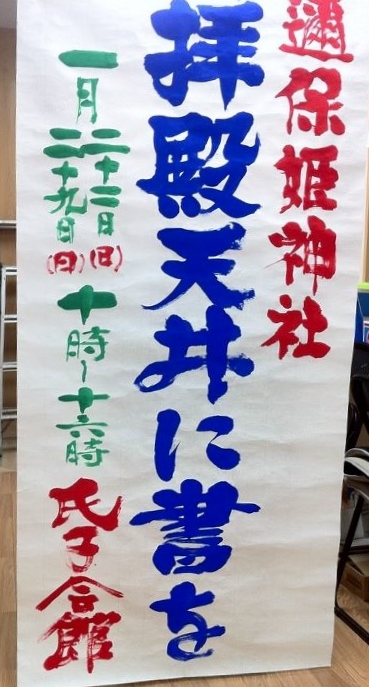 邇保姫神社
拝殿天井に書を
一月二十二日(日)
二十九日(日)
十時〜十六時
氏子会館